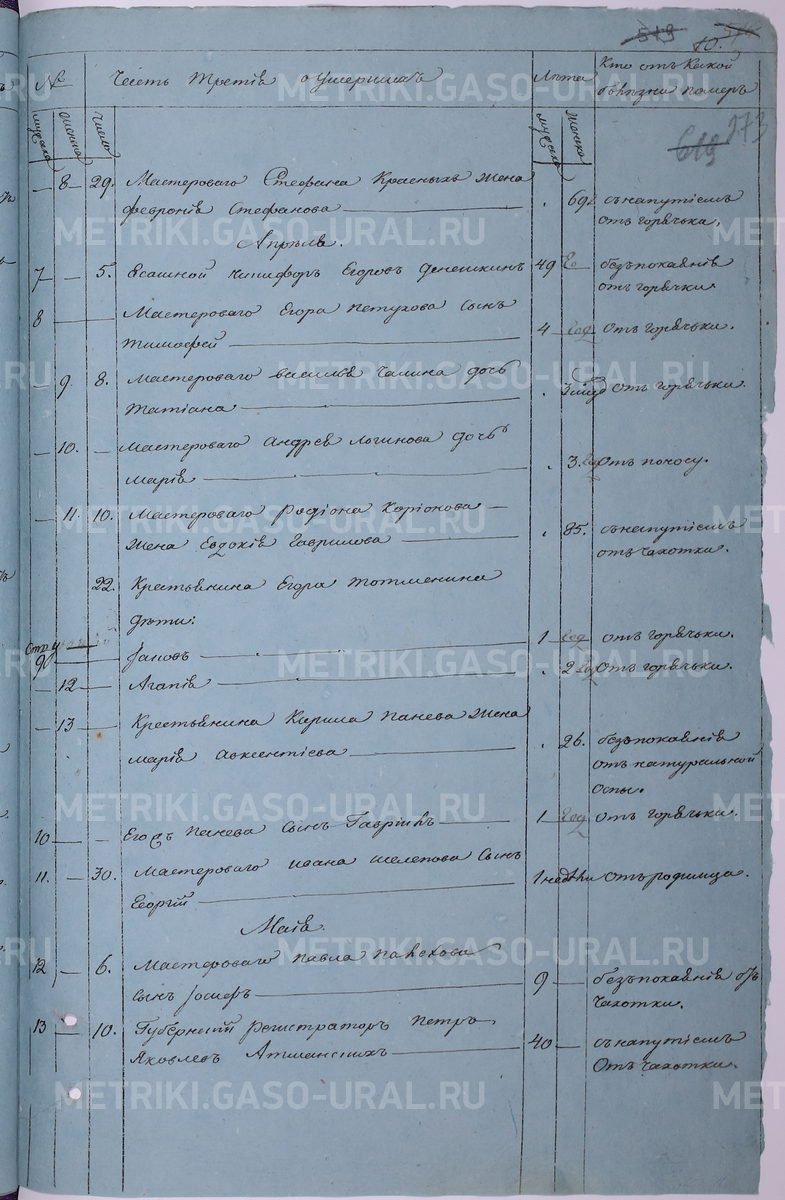 519
10.
№ Часть Третія о умершихъ Лѣта Кто отъ Какой
болѣзни померъ
мужеска женска Число мужеска женска
273
619
— 8 — 29. Мастероваго Стефана Красныхъ Жена
Февронія Стефанова — 69. съ напутіемъ
отъ горячьки.
Апрѣля.
7 — 5. Ясашной Никифоръ Егоровъ 49 безъ покаянія
отъ горячки.
8 — Мастероваго Егора Петухова Сынъ
Тимоѳей — 4 год отъ горячьки.
— 9. 8. Мастероваго василья Галина дочь
Татіана — 3 отъ горячьки.
— 10. — Мастероваго Андрея Логинова дочь
Марія — 3. отъ поносу.
— 11. 10. Мастероваго Родіона Коріонова —
Жена Евдокія Гаврилова — 85. съ напутіемъ
отъ чахотки.
22. Крестьянина Егора Тотменина
дѣти:
9 — Іаковъ — 1 год отъ горячьки.
— 12 — Агапія — 2 отъ горячьки.
— 13 — Крестьянина Кирила Панева Жена
Марія Авксентіева — 26. безъ покаянія
отъ натуральной
Оспы.
10 — — Егора Панева Сынъ Гавріилъ — 1 год отъ горячьки.
11. — 30. Мастероваго Ивана Шелепова Сынъ
Георгій — 1 недѣли отъ родимца.
Маія.
12 — 6. Мастероваго Павла
сынъ Іосифъ — 9 — безъ покаянія отъ
Чахотки.
13 — 10. Губернскій регистраторъ Петръ
Яковлевъ Атманскихъ — 40 — съ напутіемъ
Отъ чахотки.
METRIKI.GASO-URAL.RU